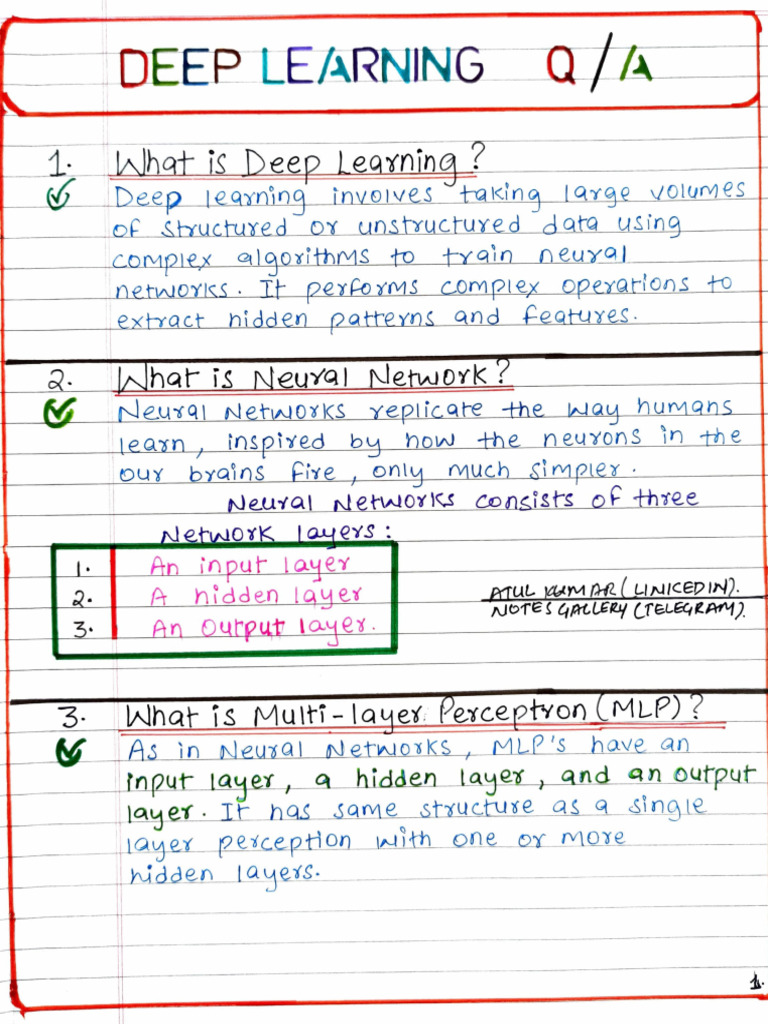 DEEP LEARNING Q/A
1. What is Deep Learning?
Deep learning involves taking large volumes
of structured or unstructured data using
complex algorithms to train neural
networks. It performs complex operations to
extract hidden patterns and features.
2. What is Neural Network?
Neural Networks replicate the way humans
learn, inspired by how the neurons in the
our brains fire, only much simpler.
Neural Networks consists of three
Network layers:
1. An input layer
2. A hidden layer
3. An Output layer.
ATUL KUMAR (LINKEDIN).
NOTES GALLERY (TELEGRAM).
3. What is Multi-layer Perceptron (MLP)?
As in Neural Networks, MLP's have an
input layer, a hidden layer, and an output
layer. It has same structure as a single
layer perception with one or more
hidden layers.
1.